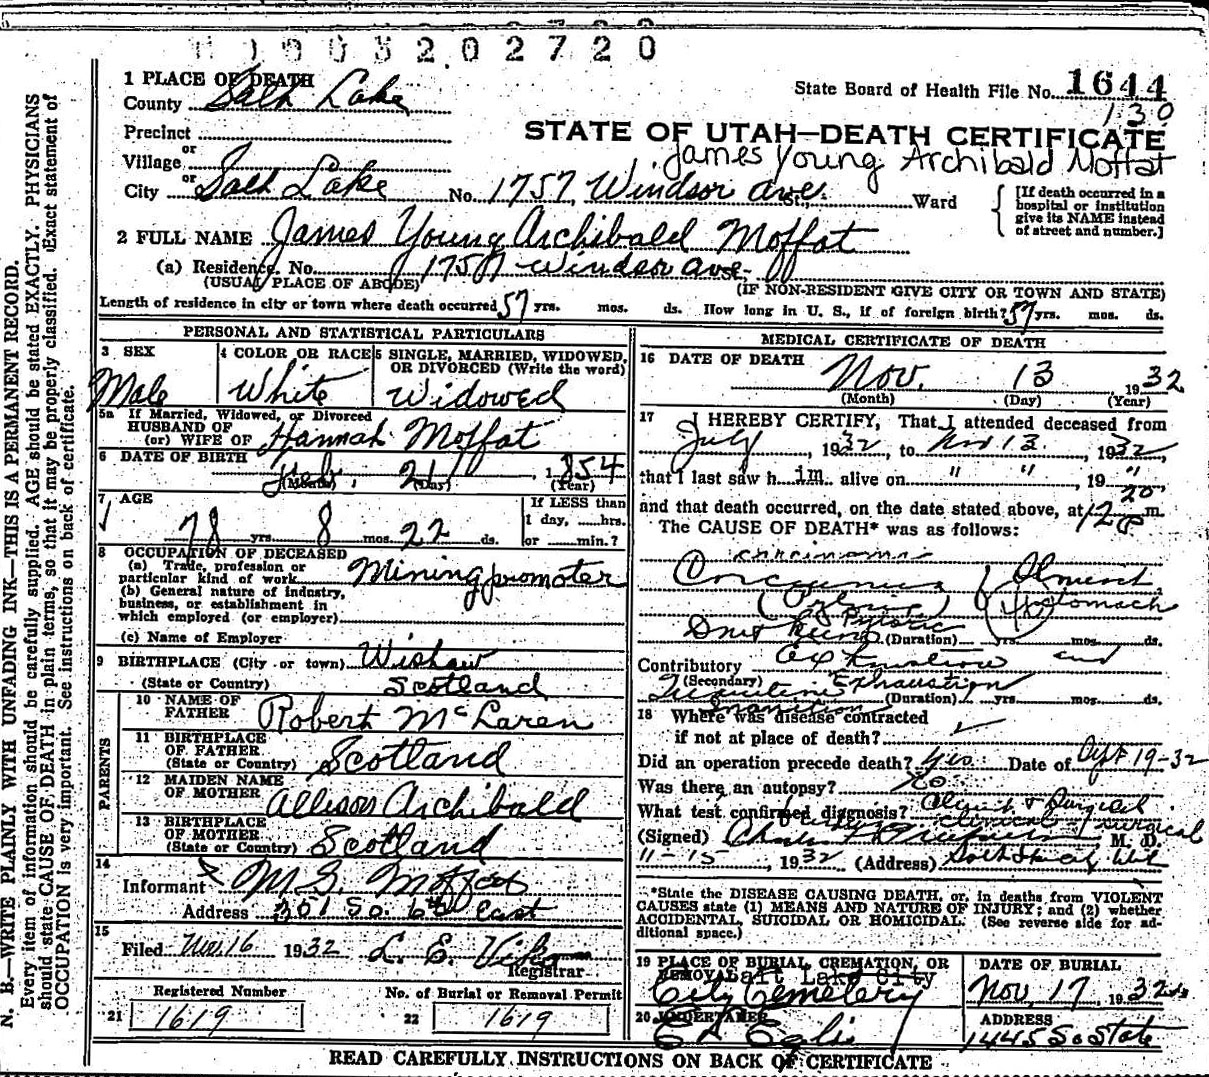 1003202720
1 PLACE OF DEATH
County Salt Lake
State Board of Health File No. 1644
130
Precinct
or
Village
or
City Salt Lake No. 1757 Windsor ave. St., Ward
STATE OF UTAH—DEATH CERTIFICATE
James Young Archibald Moffat
[If death occurred in a
hospital or institution
give its NAME instead
of street and number.]
2 FULL NAME James Young Archibald Moffat
(a) Residence. No. 1757 Windsor ave.
(USUAL PLACE OF ABODE) (IF NON-RESIDENT GIVE CITY OR TOWN AND STATE)
Length of residence in city or town where death occurred 57 yrs. mos. ds. How long in U. S., if of foreign birth? 57 yrs. mos. ds.
PERSONAL AND STATISTICAL PARTICULARS
3 SEX
Male
4 COLOR OR RACE
White
5 SINGLE, MARRIED, WIDOWED,
OR DIVORCED (Write the word)
Widowed
5a If Married, Widowed, or Divorced
HUSBAND OF
(or) WIFE OF Hannah Moffat
6 DATE OF BIRTH
Feb. 21 1854
(Month) (Day) (Year)
7 AGE
78 yrs. 8 mos. 22 ds.
If LESS than
1 day, hrs.
or min.?
8 OCCUPATION OF DECEASED
(a) Trade, profession or
particular kind of work Mining promoter
(b) General nature of industry,
business, or establishment in
which employed (or employer)
(c) Name of Employer
9 BIRTHPLACE (City or town) Wishaw
(State or Country) Scotland
PARENTS
10 NAME OF
FATHER Robert McLaren
11 BIRTHPLACE
OF FATHER
(State or Country) Scotland
12 MAIDEN NAME
OF MOTHER Allison Archibald
13 BIRTHPLACE
OF MOTHER
(State or Country) Scotland
14
Informant M. S. Moffat
Address 351 So. 6th East
15
Filed Nov. 16 1932 L. E. Viko
Registrar
Registered Number
21 1619
No. of Burial or Removal Permit
22 1619
MEDICAL CERTIFICATE OF DEATH
16 DATE OF DEATH
Nov. 13 1932
(Month) (Day) (Year)
17 I HEREBY CERTIFY, That I attended deceased from
July, 1932, to Nov 13, 1932,
that I last saw him alive on " ", 19 ",
and that death occurred, on the date stated above, at 12 20 P m.
The CAUSE OF DEATH* was as follows:
carcinoma
Stomach
Pyloric
(Duration) yrs. mos. ds.
Contributory Exhaustion and
(Secondary) Exhaustion
Inanition (Duration) yrs. mos. ds.
Inanition
18 Where was disease contracted
if not at place of death?
Did an operation precede death? Yes. Date of Apr 19-32
Was there an autopsy? No
What test confirmed diagnosis? Clinical & Surgical
clinical & surgical
(Signed) M. D.
11-15, 1932 (Address) Salt Lake City, Utah
*State the DISEASE CAUSING DEATH, or, in deaths from VIOLENT
CAUSES state (1) MEANS AND NATURE OF INJURY; and (2) whether
ACCIDENTAL, SUICIDAL OR HOMICIDAL. (See reverse side for ad-
ditional space.)
19 PLACE OF BURIAL, CREMATION, OR
REMOVAL Salt Lake City
City Cemetery
DATE OF BURIAL
Nov. 17 1932
20 UNDERTAKER
ADDRESS
1445 So State
READ CAREFULLY INSTRUCTIONS ON BACK OF CERTIFICATE
N. B.—WRITE PLAINLY WITH UNFADING INK—THIS IS A PERMANENT RECORD.
Every item of information should be carefully supplied. AGE should be stated EXACTLY. PHYSICIANS
should state CAUSE OF DEATH in plain terms, so that it may be properly classified. Exact statement of
OCCUPATION is very important. See instructions on back of certificate.